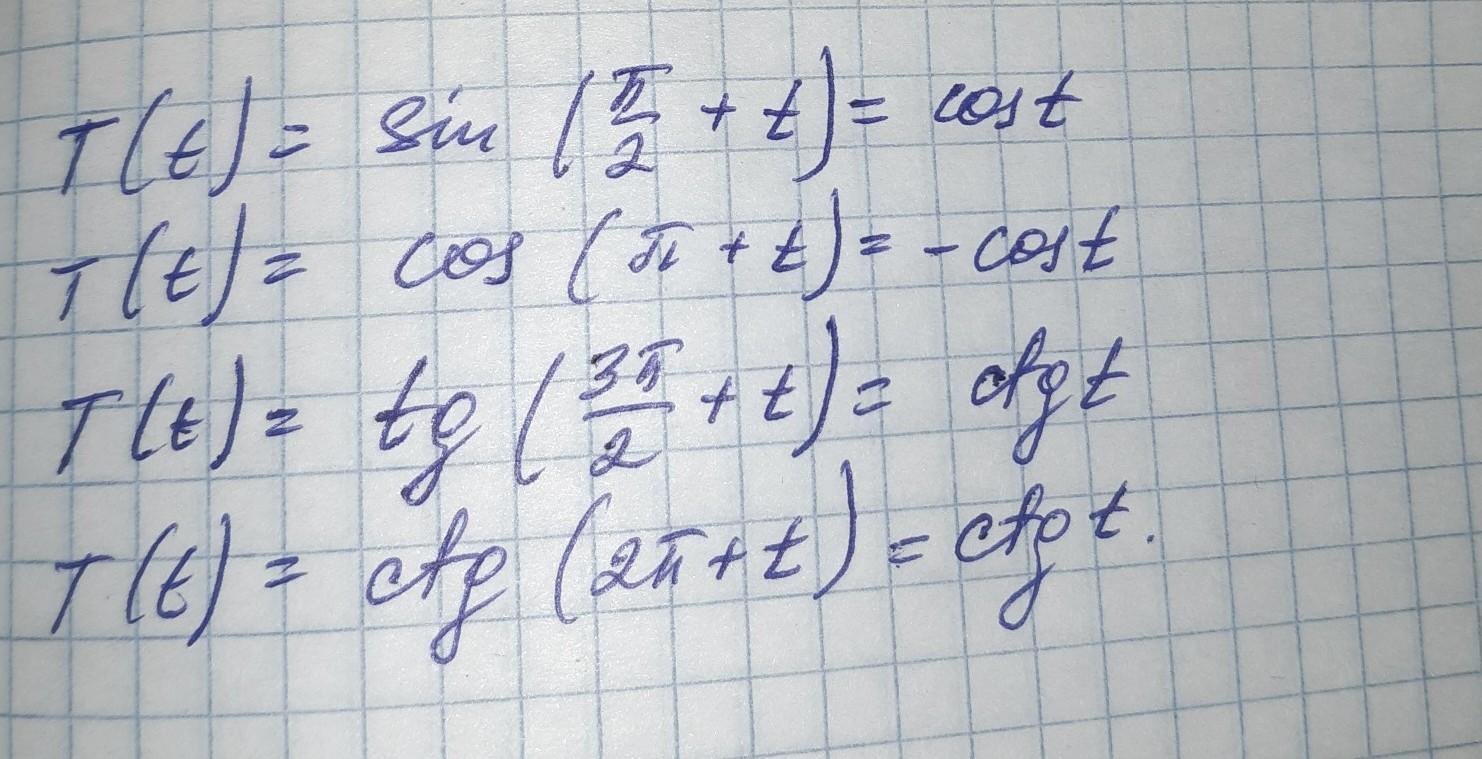 T(t) = sin (π/2 + t) = cost
T(t) = cos (π + t) = - cost
T(t) = tg (3π/2 + t) = ctg t
T(t) = ctg (2π + t) = ctg t.